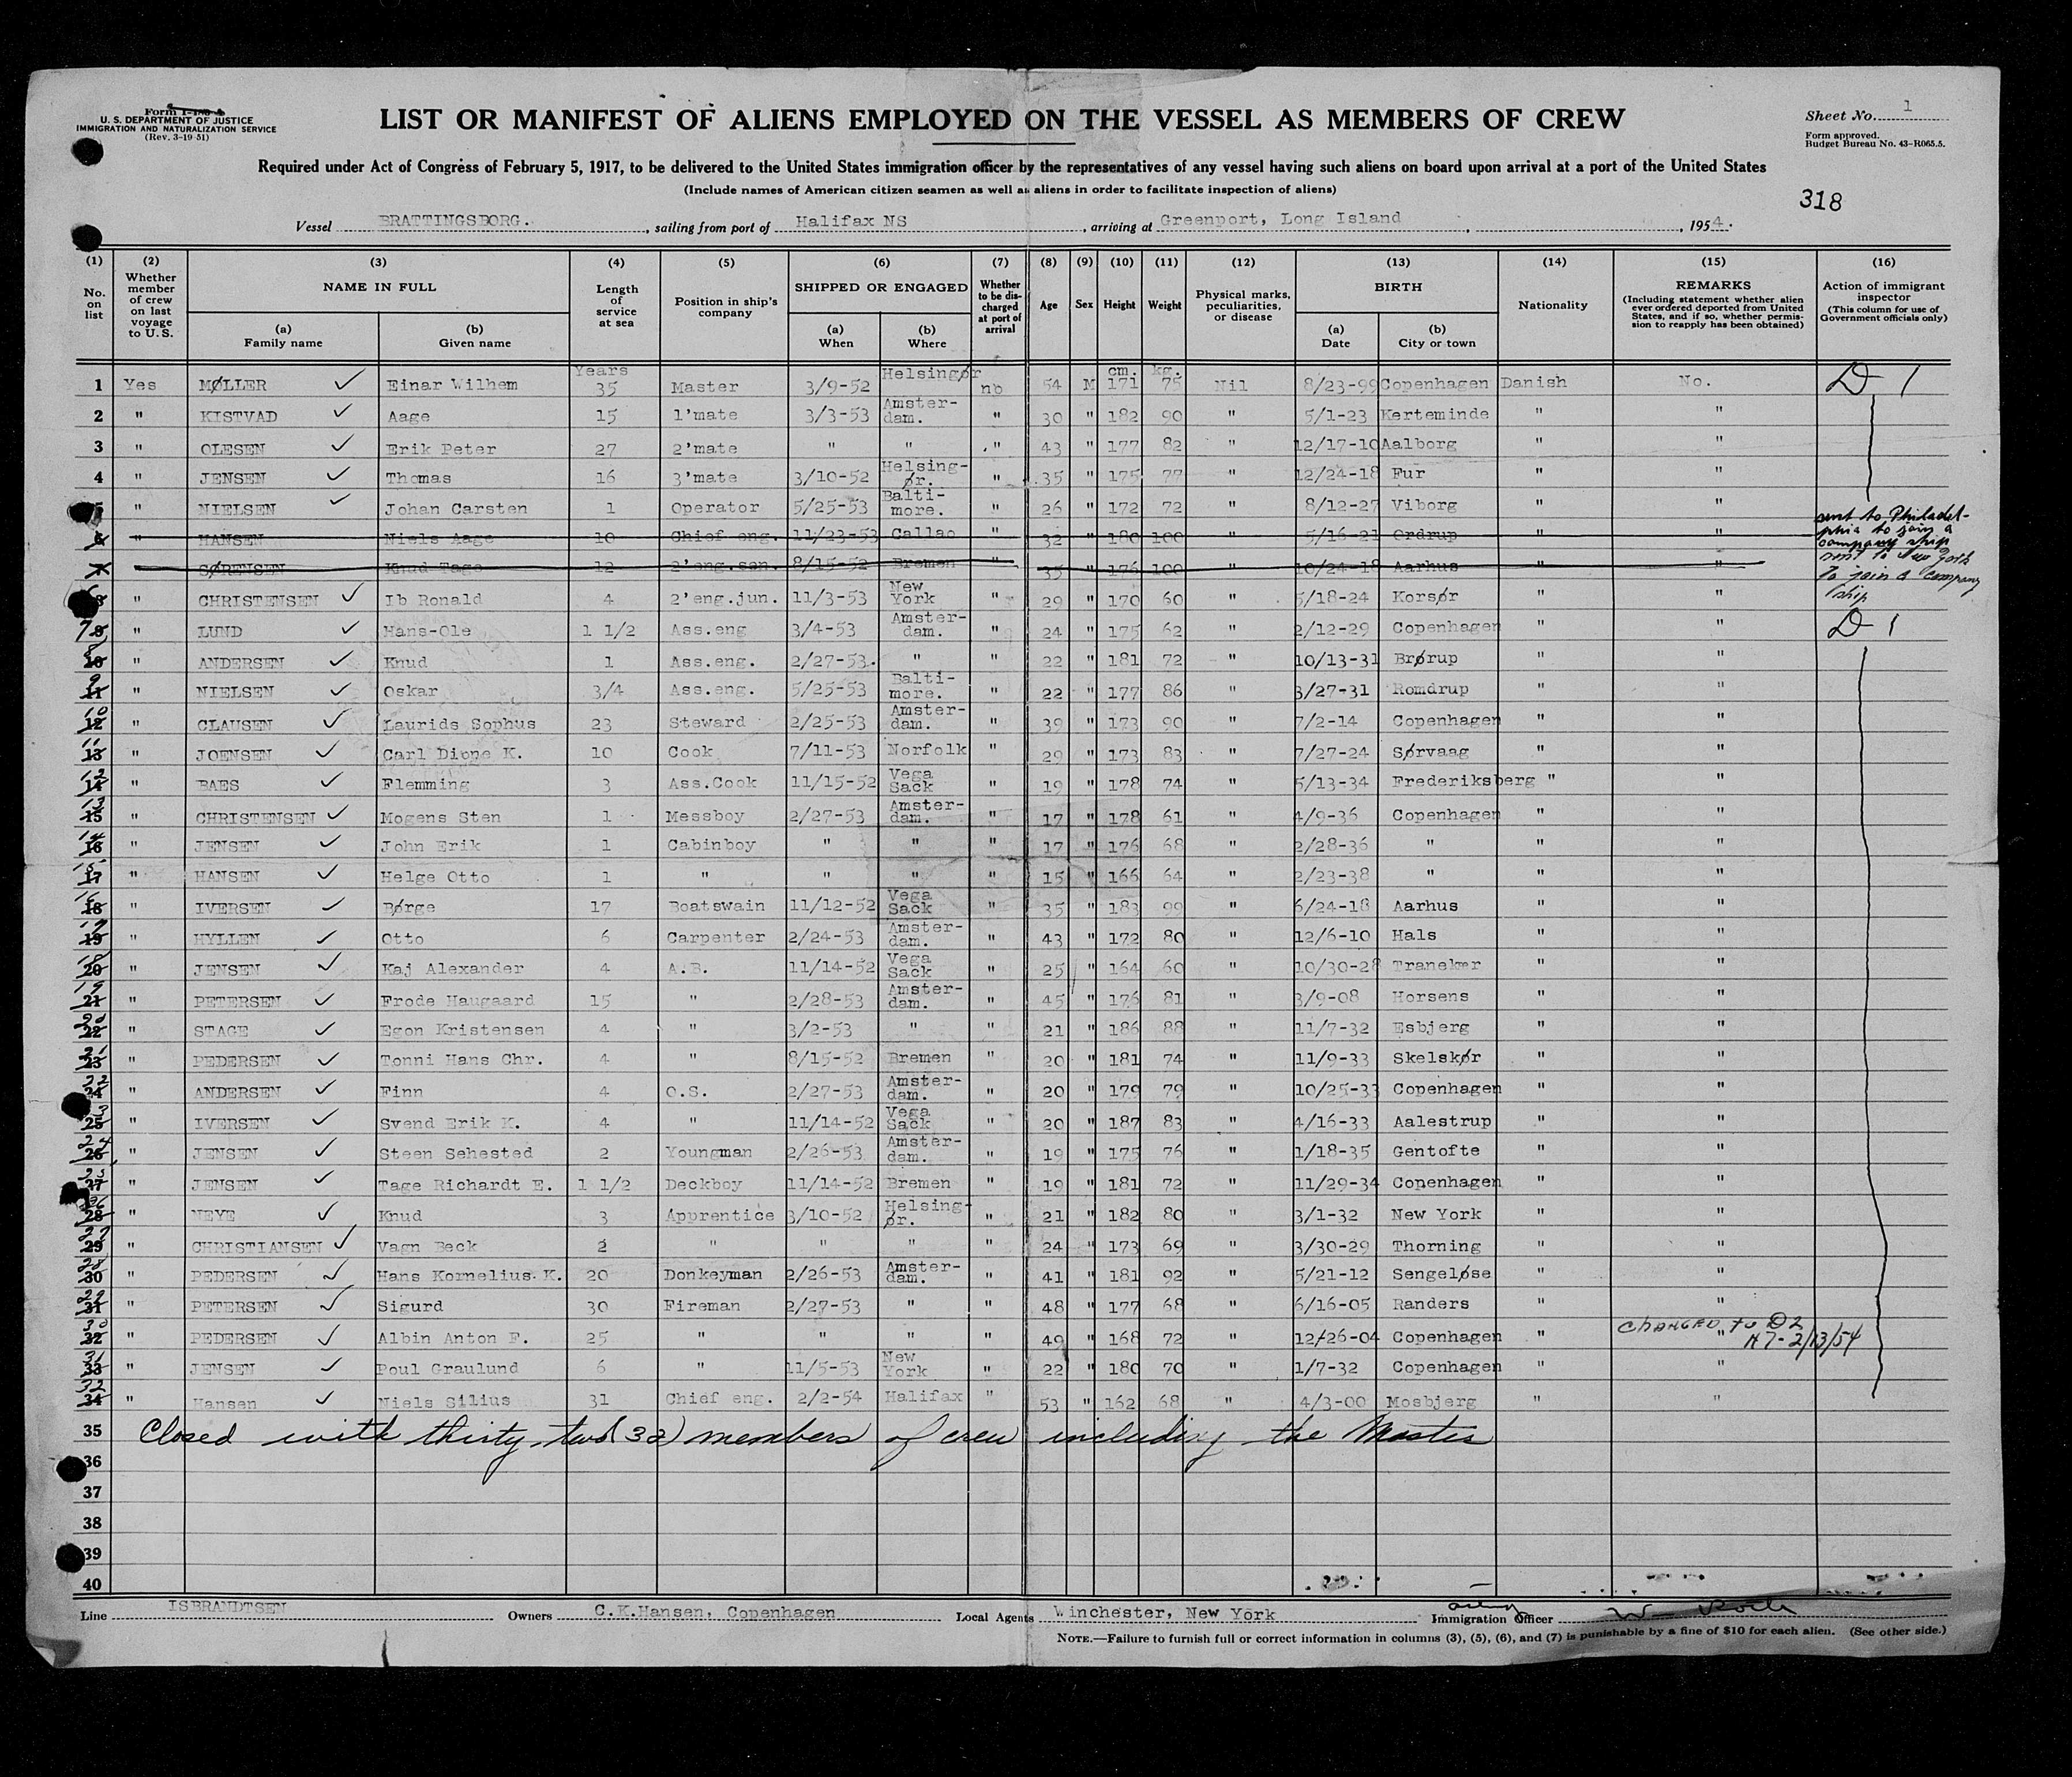 Form I-
U. S. DEPARTMENT OF JUSTICE
IMMIGRATION AND NATURALIZATION SERVICE
(Rev. 3-19-51)
LIST OR MANIFEST OF ALIENS EMPLOYED ON THE VESSEL AS MEMBERS OF CREW
Sheet No. 1
Form approved.
Budget Bureau No. 43-R065.5.
Required under Act of Congress of February 5, 1917, to be delivered to the United States immigration officer by the representatives of any vessel having such aliens on board upon arrival at a port of the United States
(Include names of American citizen seamen as well as aliens in order to facilitate inspection of aliens)
318
Vessel BRATTINGSBORG. , sailing from port of Halifax NS , arriving at Greenport, Long Island , , 1954.
(1) (2) (3) (4) (5) (6) (7) (8) (9) (10) (11) (12) (13) (14) (15) (16)
No. on list Whether member of crew on last voyage to U. S. NAME IN FULL (a) Family name (b) Given name Length of service at sea Position in ship's company SHIPPED OR ENGAGED (a) When (b) Where Whether to be discharged at port of arrival Age Sex Height Weight Physical marks, peculiarities, or disease BIRTH (a) Date (b) City or town Nationality REMARKS (Including statement whether alien ever ordered deported from United States, and if so, whether permission to reapply has been obtained) Action of immigrant inspector (This column for use of Government officials only)
Years cm. kg.
1 Yes MØLLER ✓ Einar Wilhem 35 Master 3/9-52 Helsingør no 54 M 171 75 Nil 8/23-99 Copenhagen Danish No. D 1
2 " KISTVAD ✓ Aage 15 1'mate 3/3-53 Amster-dam. " 30 " 182 90 " 5/1-23 Kerteminde " "
3 " OLESEN ✓ Erik Peter 27 2'mate " " " 43 " 177 82 " 12/17-10 Aalborg " "
4 " JENSEN ✓ Thomas 16 3'mate 3/10-52 Helsing-ør. " 35 " 175 77 " 12/24-18 Fur " "
5 " NIELSEN ✓ Johan Carsten 1 Operator 5/25-53 Balti-more. " 26 " 172 72 " 8/12-27 Viborg " "
6 " HANSEN Niels Aage 10 Chief eng. 11/23-53 Callao " 32 " 180 100 " 5/16-21 Ordrup " " sent to Philadel-phia to join a company ship
7 SØRENSEN Knud Tage 12 2'eng.sen. 8/15-52 Bremen " 35 " 176 100 " 10/24-18 Aarhus " " sent to New York to join a company ship
6 8 " CHRISTENSEN ✓ Ib Ronald 4 2'eng.jun. 11/3-53 New York " 29 " 170 60 " 5/18-24 Korsør " "
7 9 " LUND ✓ Hans-Ole 1 1/2 Ass.eng 3/4-53 Amster-dam. " 24 " 175 62 " 2/12-29 Copenhagen " " D 1
8 10 " ANDERSEN ✓ Knud 1 Ass.eng. 2/27-53. " " 22 " 181 72 " 10/13-31 Brørup " "
9 11 " NIELSEN ✓ Oskar 3/4 Ass.eng. 5/25-53 Balti-more. " 22 " 177 86 " 3/27-31 Romdrup " "
10 12 " CLAUSEN ✓ Laurids Sophus 23 Steward 2/25-53 Amster-dam. " 39 " 173 90 " 7/2-14 Copenhagen " "
11 13 " JOENSEN ✓ Carl Dione K. 10 Cook 7/11-53 Norfolk " 29 " 173 83 " 7/27-24 Sørvaag " "
12 14 " BAES ✓ Flemming 3 Ass.Cook 11/15-52 Vega Sack " 19 " 178 74 " 5/13-34 Frederiksberg " "
13 15 " CHRISTENSEN ✓ Mogens Sten 1 Messboy 2/27-53 Amster-dam. " 17 " 178 61 " 4/9-36 Copenhagen " "
14 16 " JENSEN ✓ John Erik 1 Cabinboy " " " 17 " 176 68 " 2/28-36 " " "
15 17 " HANSEN ✓ Helge Otto 1 " " " " 15 " 166 64 " 2/23-38 " " "
16 18 " IVERSEN ✓ Børge 17 Boatswain 11/12-52 Vega Sack " 35 " 183 99 " 6/24-18 Aarhus " "
17 19 " HYLLEN ✓ Otto 6 Carpenter 2/24-53 Amster-dam. " 43 " 172 80 " 12/6-10 Hals " "
18 20 " JENSEN ✓ Kaj Alexander 4 A.B. 11/14-52 Vega Sack " 25 " 164 60 " 10/30-28 Tranekær " "
19 21 " PETERSEN ✓ Frode Haugaard 15 " 2/28-53 Amster-dam. " 45 " 176 81 " 3/9-08 Horsens " "
20 22 " STAGE ✓ Egon Kristensen 4 " 3/2-53 " " 21 " 186 88 " 11/7-32 Esbjerg " "
21 23 " PEDERSEN ✓ Tonni Hans Chr. 4 " 8/15-52 Bremen " 20 " 181 74 " 11/9-33 Skelskør " "
22 24 " ANDERSEN ✓ Finn 4 O.S. 2/27-53 Amster-dam. " 20 " 179 79 " 10/25-33 Copenhagen " "
23 25 " IVERSEN ✓ Svend Erik K. 4 " 11/14-52 Vega Sack " 20 " 187 83 " 4/16-33 Aalestrup " "
24 26 " JENSEN ✓ Steen Sehested 2 Youngman 2/26-53 Amster-dam. " 19 " 175 76 " 1/18-35 Gentofte " "
25 27 " JENSEN ✓ Tage Richardt E. 1 1/2 Deckboy 11/14-52 Bremen " 19 " 181 72 " 11/29-34 Copenhagen " "
26 28 " NEYE ✓ Knud 3 Apprentice 3/10-52 Helsing-ør. " 21 " 182 80 " 3/1-32 New York " "
27 29 " CHRISTIANSEN ✓ Vagn Beck 2 " " " " 24 " 173 69 " 3/30-29 Thorning " "
28 30 " PEDERSEN ✓ Hans Kornelius K. 20 Donkeyman 2/26-53 Amster-dam. " 41 " 181 92 " 5/21-12 Sengeløse " "
29 31 " PETERSEN ✓ Sigurd 30 Fireman 2/27-53 " " 48 " 177 68 " 6/16-05 Randers " "
30 32 " PEDERSEN ✓ Albin Anton F. 25 " " " " 49 " 168 72 " 12/26-04 Copenhagen " " Changed to D2 2/13/54
31 33 " JENSEN ✓ Poul Graulund 6 " 11/5-53 New York " 22 " 180 70 " 1/7-32 Copenhagen " "
32 34 " Hansen ✓ Niels Silius 31 Chief eng. 2/2-54 Halifax " 53 " 162 68 " 4/3-00 Mosbjerg " "
35 Closed with thirty two (32) members of crew including the Master
36
37
38
39
40
Line ISBRANDTSEN Owners C.K.Hansen, Copenhagen Local Agents Winchester, New York acting Immigration Officer
NOTE.—Failure to furnish full or correct information in columns (3), (5), (6), and (7) is punishable by a fine of $10 for each alien. (See other side.)